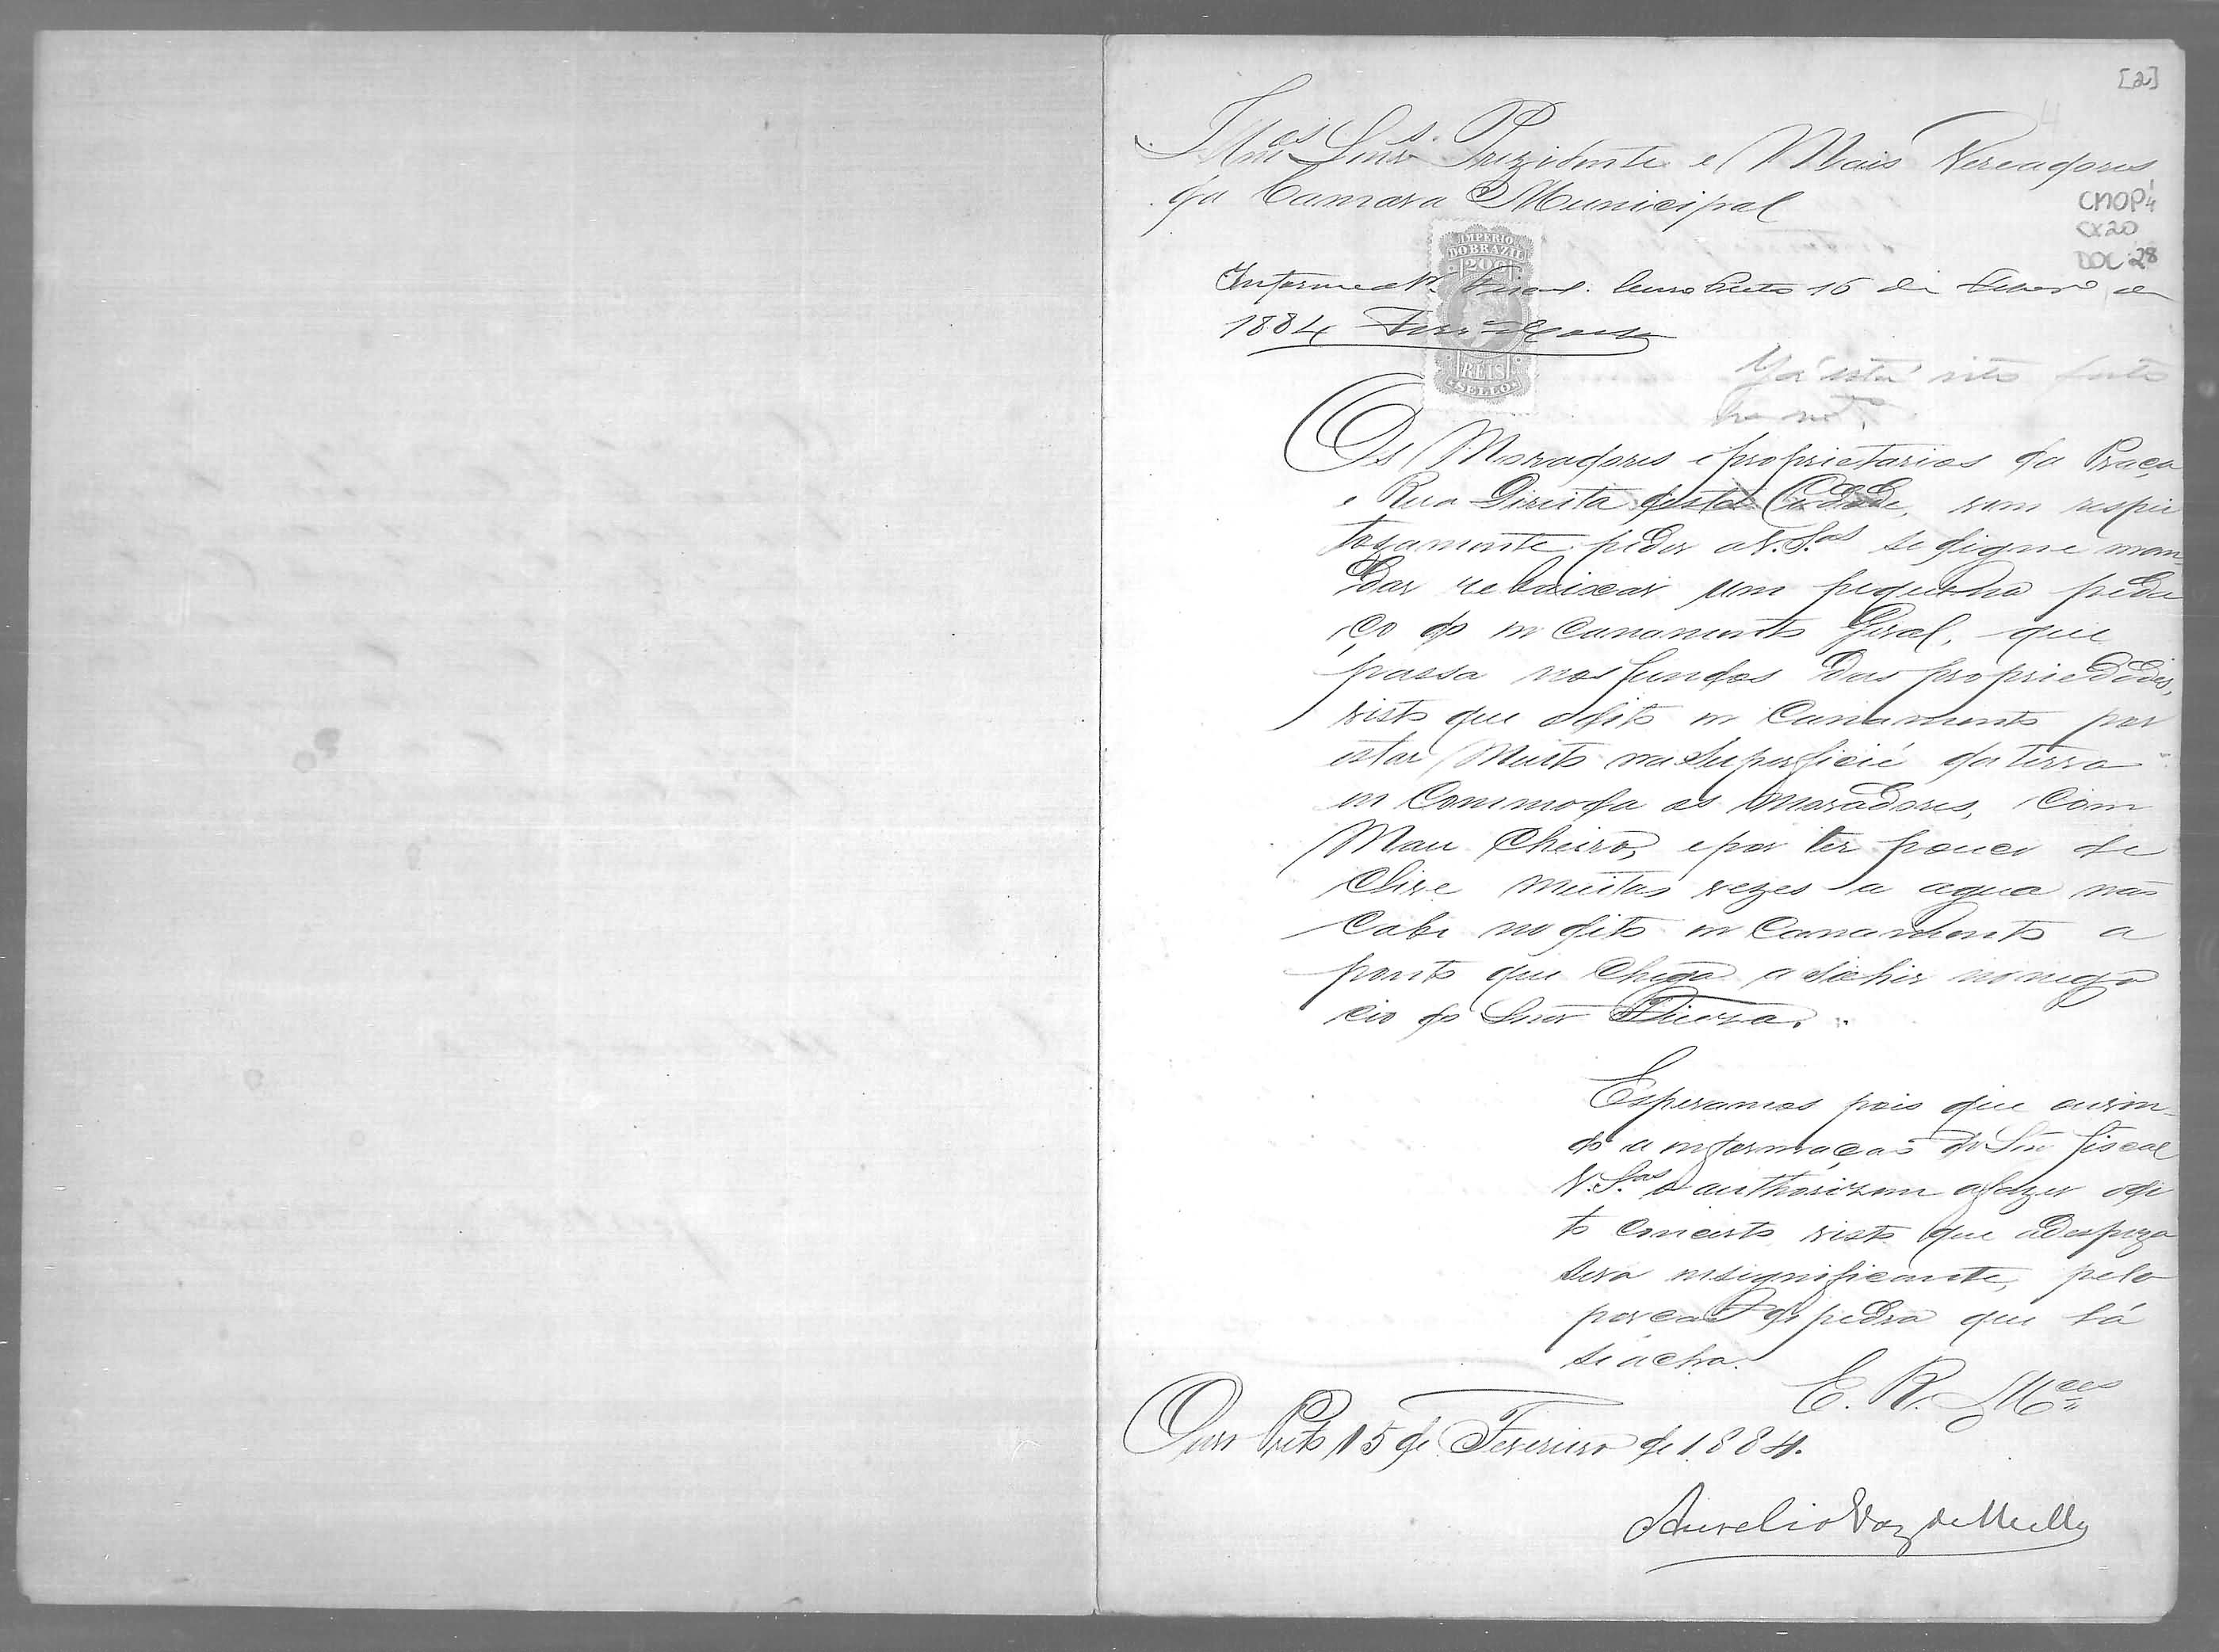 [2]
Illmos Snrs. Prezidente e Mais Vereadores
da Camara Municipal
CMOP
CX20
DOC 28
IMPERIO
DO BRAZIL
200
REIS
SELLO
Informe o Sr. Fiscal. Ouro Preto 16 de Fevero de
1884
Já está
Os Moradores e proprietarios da Praça
e Rua Direita desta Cidade, vem respei
tozamente pedir a V.S.as se digne man-
dar rebaixar um pequeno peda
ço do in Canamento Geral, que
passa nos fundos das propriedades,
visto que o dito in Canamento por
estar Muito na Superficie da terra
in Commoda os Moradores, Com
Mau Cheiro, e por ter pouco de
Clive muitas vezes a agua não
Cabe no dito in Canamento a
ponto que Chega a sahir no nego
cio do Snor Vieira.
Esperamos pois que ouvin-
do a informação do Snr fiscal
V.S.as o authorizem a fazer o di
to Concerto visto que a despeza
sera insignificante, pelo
de pedra que lá
se acha.
E. R. Mces
Ouro Preto 15 de Fevereiro de 1884.
Aurelio Vaz de Mello